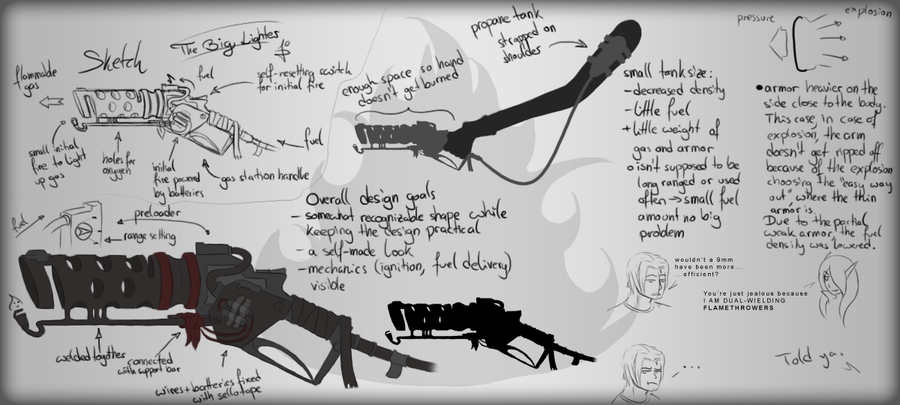 Sketch
The Big Lighter
flammable
gas
fuel
self-resetting switch
for initial fire
fuel
small initial
fire to light
up gas
holes for
oxygen
initial
fire powered
by batteries
gas station handle
enough space so hand
doesn't get burned
propane tank
strapped on
shoulder
small tank size:
- decreased density
- little fuel
+ little weight of
gas and armor
o isn't supposed to be
long ranged or used
often → small fuel
amount no big
problem
pressure
explosion
• armor heavier on the
side close to the body.
This case, in case of
explosion, the arm
doesn't get ripped off
because of the explosion
choosing the "easy way
out", where the thin
armor is.
Due to the partial
weak armor, the fuel
density was lowered.
Overall design goals
- somewhat recognizable shape while
keeping the design practical
- a self-made look
- mechanics (ignition, fuel delivery)
visible
fuel
preloader
range setting
welded together
connected
with support bar
wires + batteries fixed
with sellotape
wouldn't a 9mm
have been more...
...efficient?
You're just jealous because
I AM DUAL-WIELDING
FLAMETHROWERS
...
Told ya.